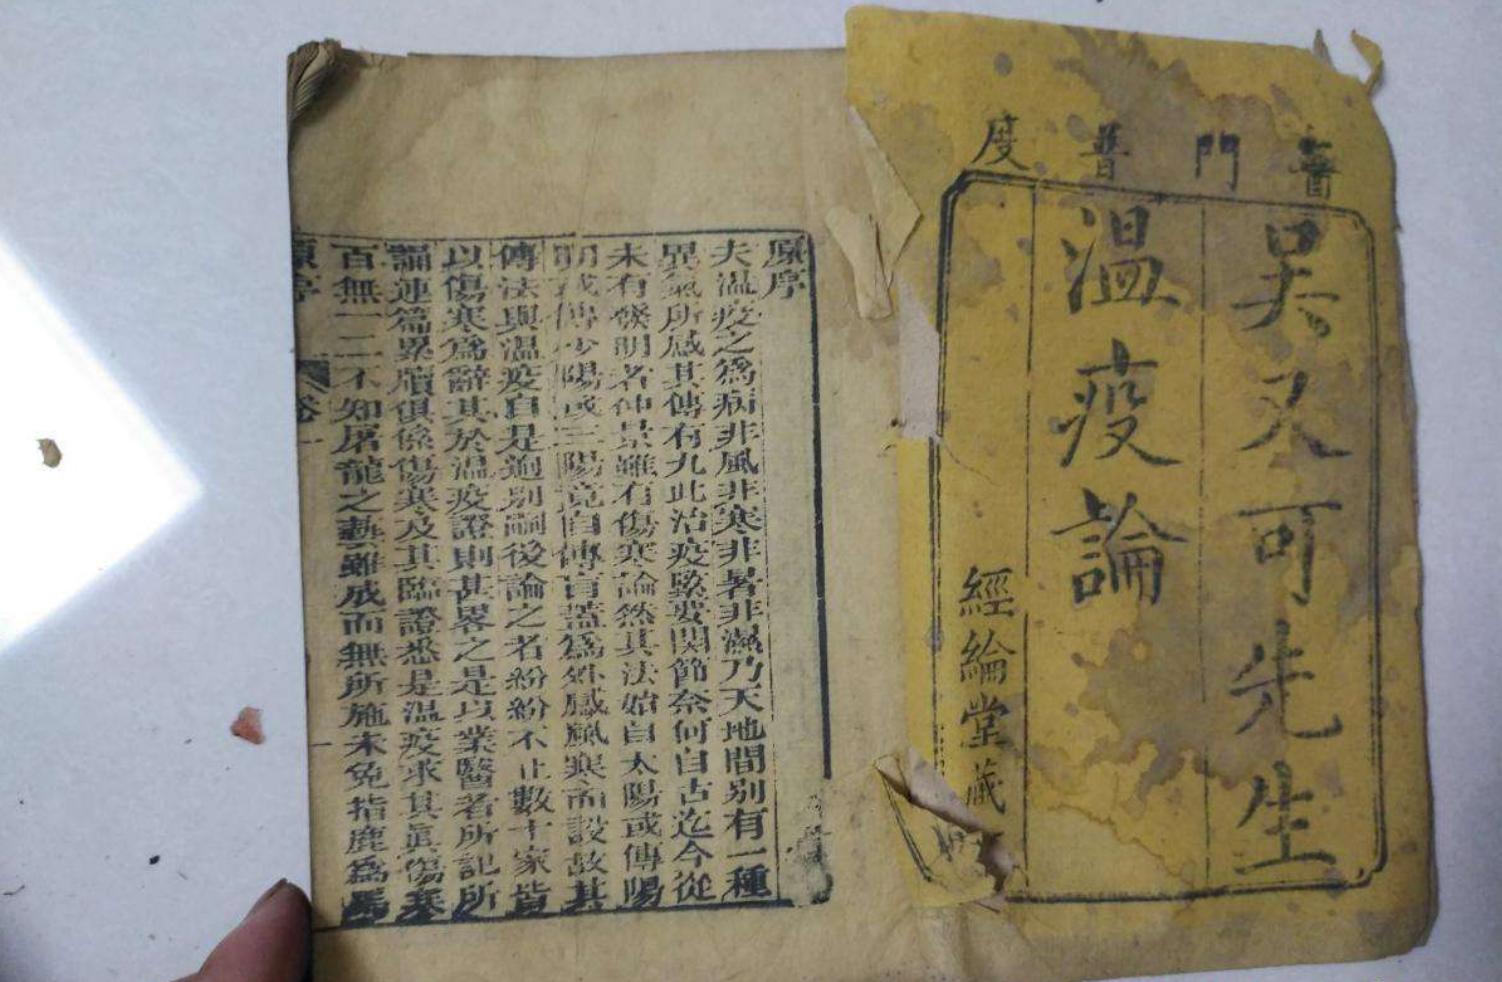 普門普度
吳又可先生
溫疫論
經綸堂藏
原序
夫溫疫之爲病非風非寒非暑非濕乃天地間别有一種
異氣所感其傳有九此治疫緊要関節奈何自古迄今從
未有發明者仲景雖有傷寒論然其法始自太陽或傳陽
明或傳少陽或三陽竟自傳胃蓋爲外感風寒而設故其
傳法與溫疫自是逈别嗣後論之者紛紛不止數十家皆
以傷寒爲辭其於溫疫證則甚畧之是以業醫者所記所
誦連篇累牘俱係傷寒及其臨證悉是溫疫求其眞傷寒
百無一二不知屠龍之藝雖成而無所施未免指鹿爲馬
原序
卷一
一